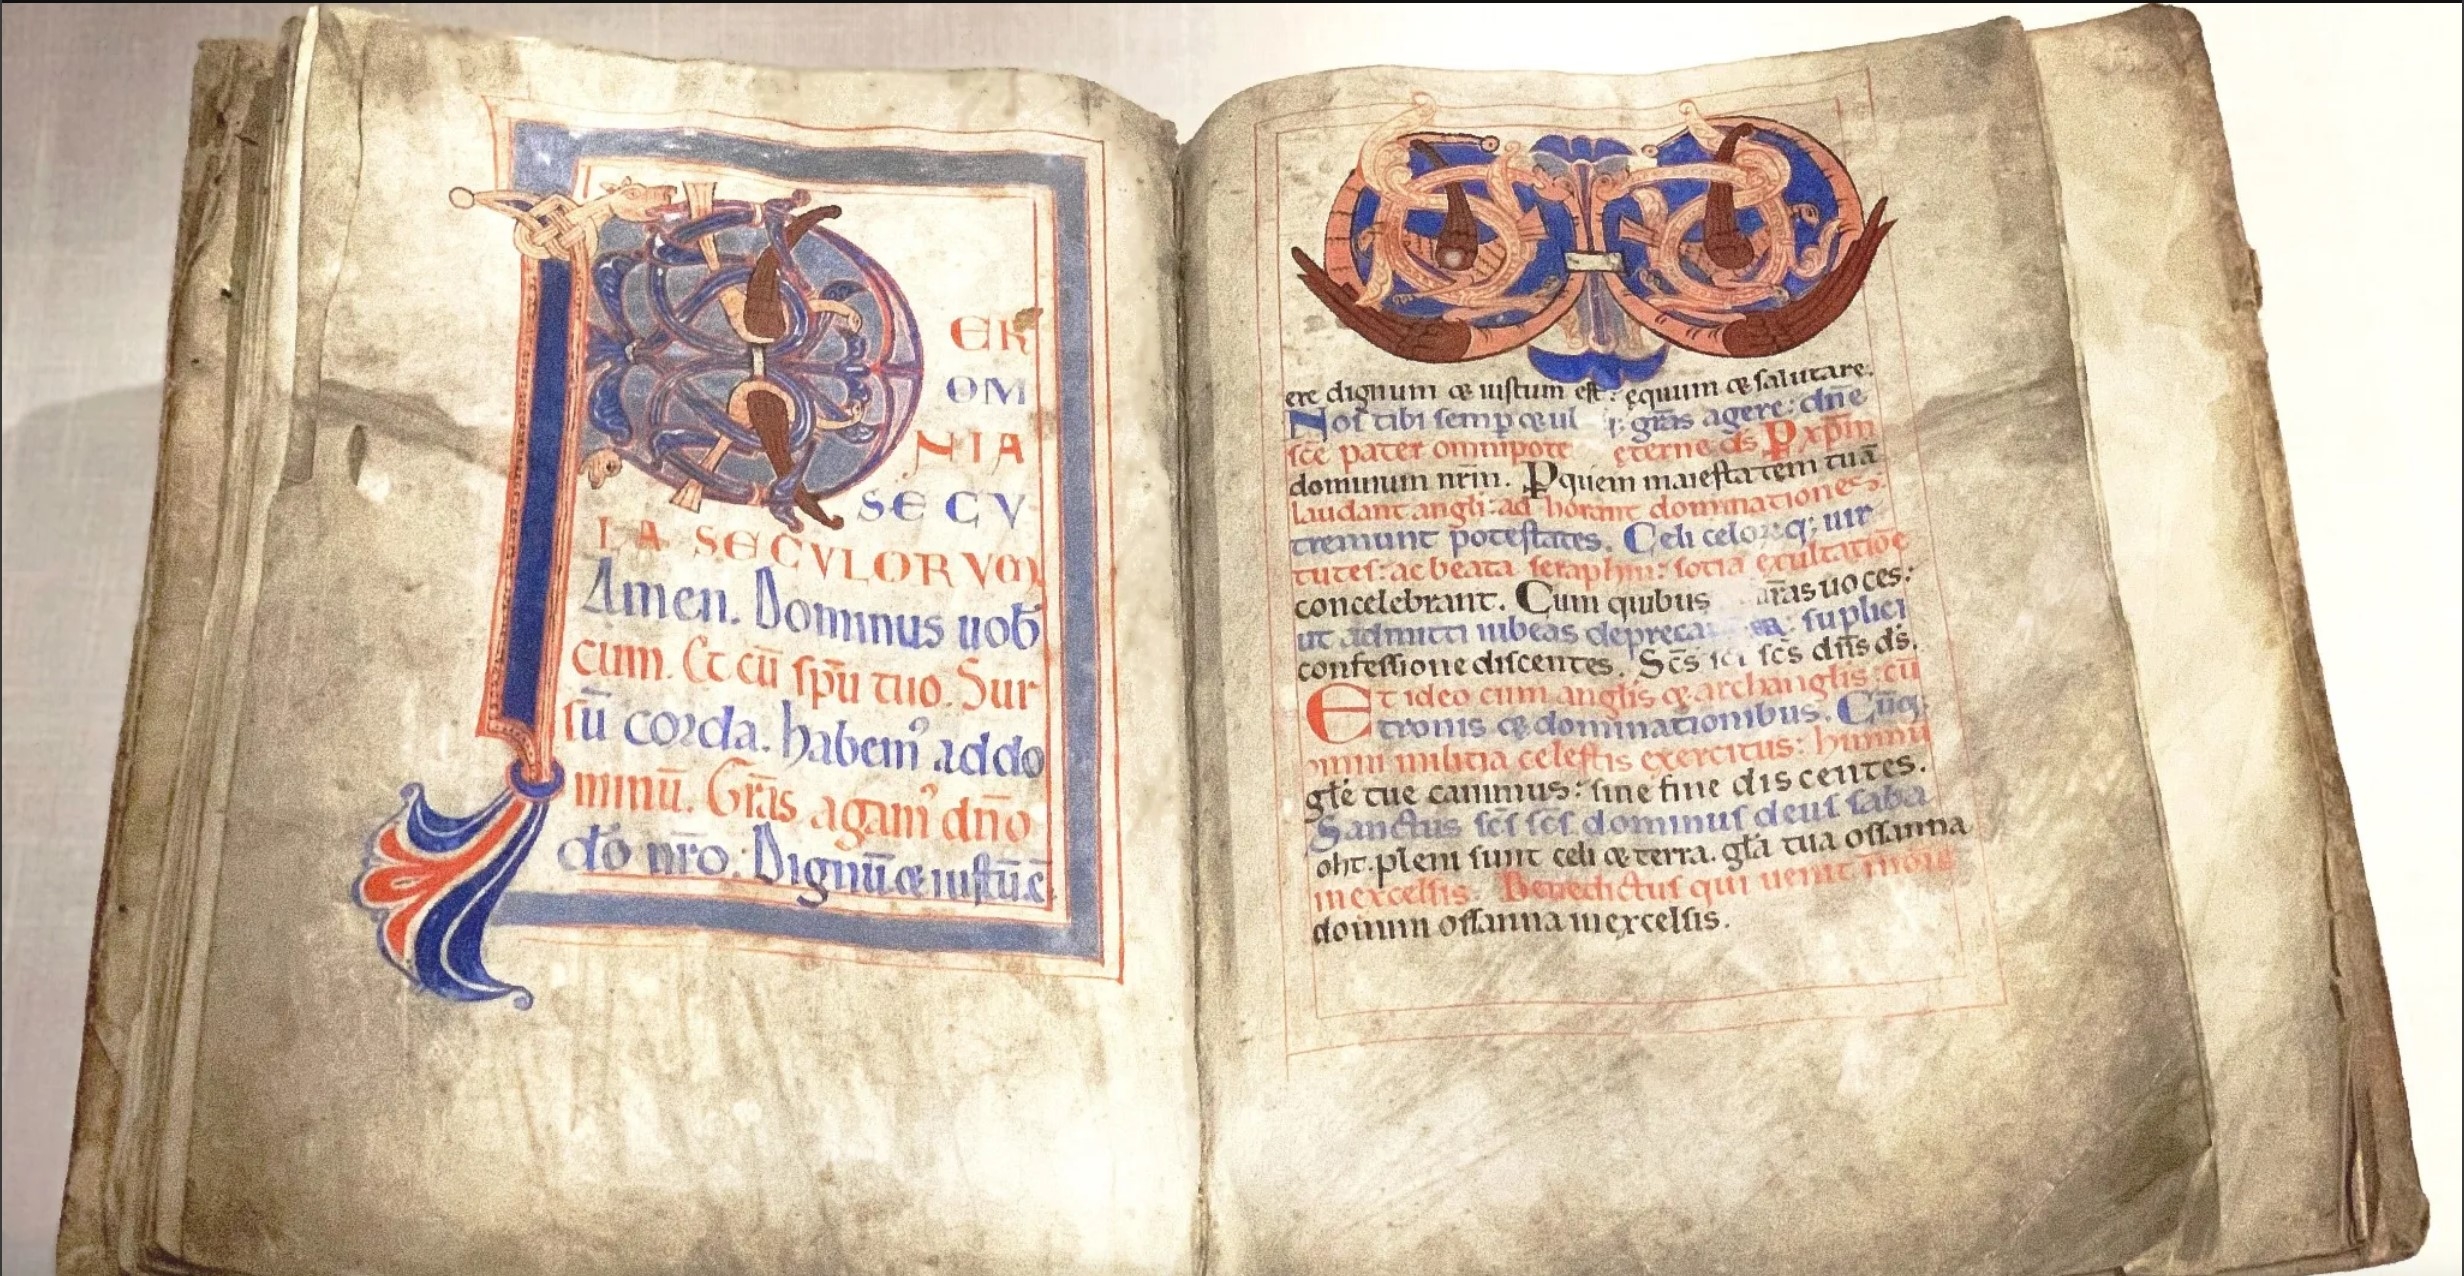 P
ER
OM
NIA
SECV
LA SECVLORVM
Amen. Dominus uob
cum. Et cū spū tuo. Sur
sū corda. habemꝰ addo
minū. Grās agamꝰ dn̄o
dō nr̄o. Dignū & iustū ē.
ere dignum & iustum est: ęquum & salutare.
Nos tibi semp & grās agere: dn̄e
sc̄e pater eterne ds̄ P xp̄m
dominum nr̄m. Pquem maiestatem tuā
laudant angli. adorant dominationes.
tremunt potestates. Celi celoꝝq; uir
tutes: ac beata seraphin: sotia exultatiōe
concelebrant. Cum quibus uoces:
ut admitti iubeas supplici
confessione discentes. Sc̄s sc̄s dn̄s ds̄.
Et ideo cum anglis & archanglis: cū
tronis & dominationibus. Cūq;
omni militia celestis exercitus: himnū
glē tue canimus: sine fine discentes.
Sanctus sc̄s sc̄s dominus deus saba
oht. pleni sunt celi & terra. glā tua ossanna
inexcelsis. Benedictus qui uenit
domini ossanna inexcelsis.